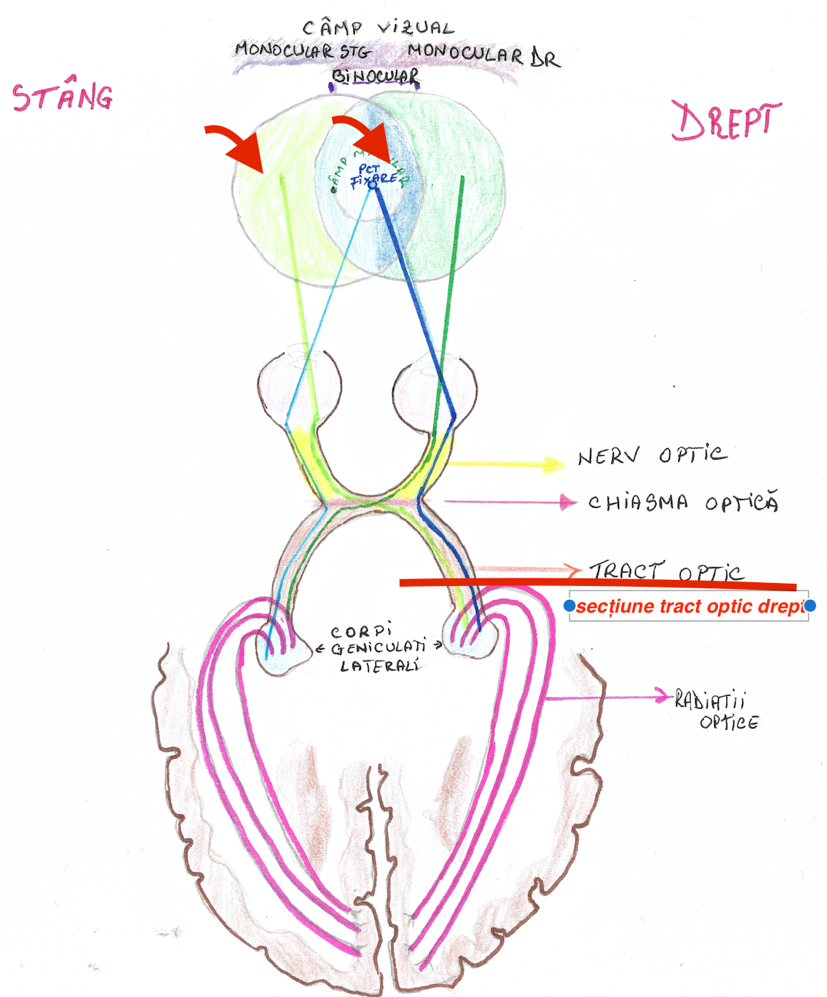 CÂMP VIZUAL
MONOCULAR STG MONOCULAR DR
BINOCULAR
STÂNG
DREPT
PCT
FIXARE
NERV OPTIC
CHIASMA OPTICĂ
TRACT OPTIC
secțiune tract optic drept
CORPI
GENICULATI
LATERALI
RADIATII
OPTICE